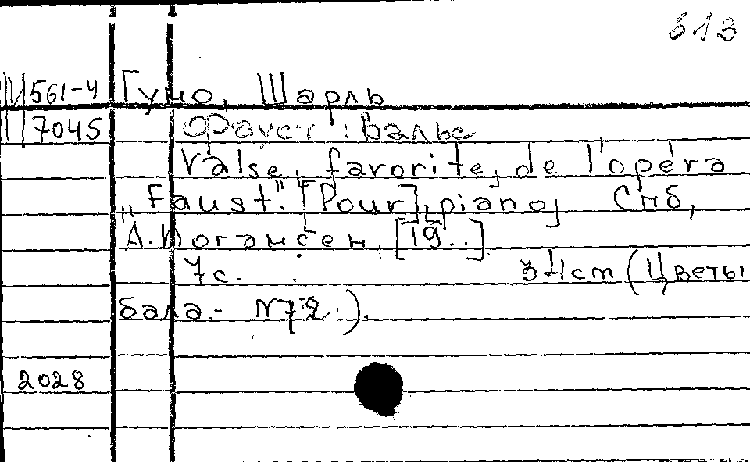 813
М561-4 Гуно, Шарль
7045 Фауст: Вальс
Valse favorite de l'opéra
„Faust". [Pour] piano, Спб,
А. Иогансен, [19..]
7с. 34cm (Цветы
бала.- N72.).
2028